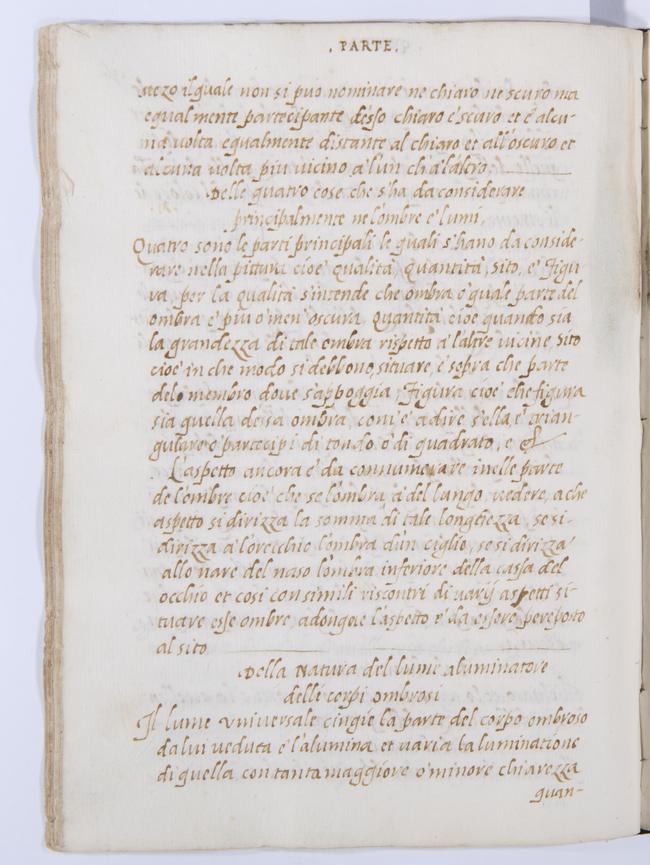 . PARTE.
mezo il quale non si puo nominare ne chiaro ne scuro ma
egualmente partecipante desso chiaro e scuro et è alcu-
na volta egualmente distante al chiaro et all'oscuro et
alcuna volta piu vicino a l'un ch'a l'altro.
Delle quatro cose che s'ha da considerare
principalmente ne l'ombre e' lumi.
Quatro sono le parti principali le quali s'hano da conside-
rare nella pittura cioè qualità, quantità, sito, e' figu
ra, per la qualità s'intende che ombra e quale parte del
ombra e' piu o' men' oscura. quantità cioe quando sia
la grandezza di tale ombra rispetto a' l'altre vicine, sito
cioè in che modo si debbono situare, e' sopra che parte
delo membro dove s'appoggia; figura cioè che figura
sia quella dessa ombra, com'è a dire s'ella è trian-
gulare o' partecipi di tondo o' di quadrato, e
L'aspetto ancora è da connumerare inelle parte
de l'ombre cioè che se l'ombra à del lungo, vedere, a che
aspetto si dirizza la somma di tale longhezza, se si-
dirizza a l'orecchio l'ombra d'un ciglio, se si dirizza
allo nare del naso l'ombra inferiore della cassa del
occhio et cosi con simili riscontri di varij aspetti si-
tuare esse ombre, adonque l'aspetto è da essere preposto
al sito
Della Natura del lume aluminatore
delli corpi ombrosi
Il lume universale cingie la parte del corpo ombroso
da lui veduta e l'alumina et varia la luminatione
di quella con tanta maggiore o' minore chiarezza
quan-